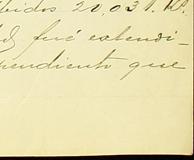 bidos 20,031.
fué extendi-
pendiente que